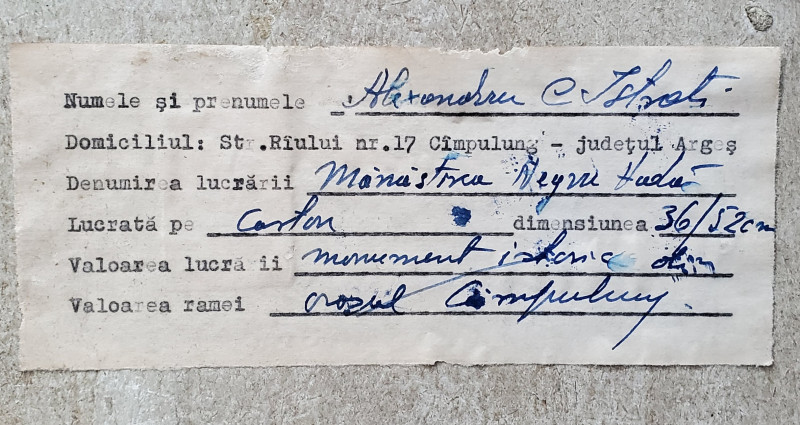 Numele şi prenumele Alexandru C Istrati
Domiciliul: Str.Rîului nr.17 Cîmpulung - judeţul Argeş
Denumirea lucrării Mănăstirea Negru Vodă
Lucrată pe carton dimensiunea 36/52 cm
Valoarea lucrării monument istoric din
Valoarea ramei orașul Câmpulung.